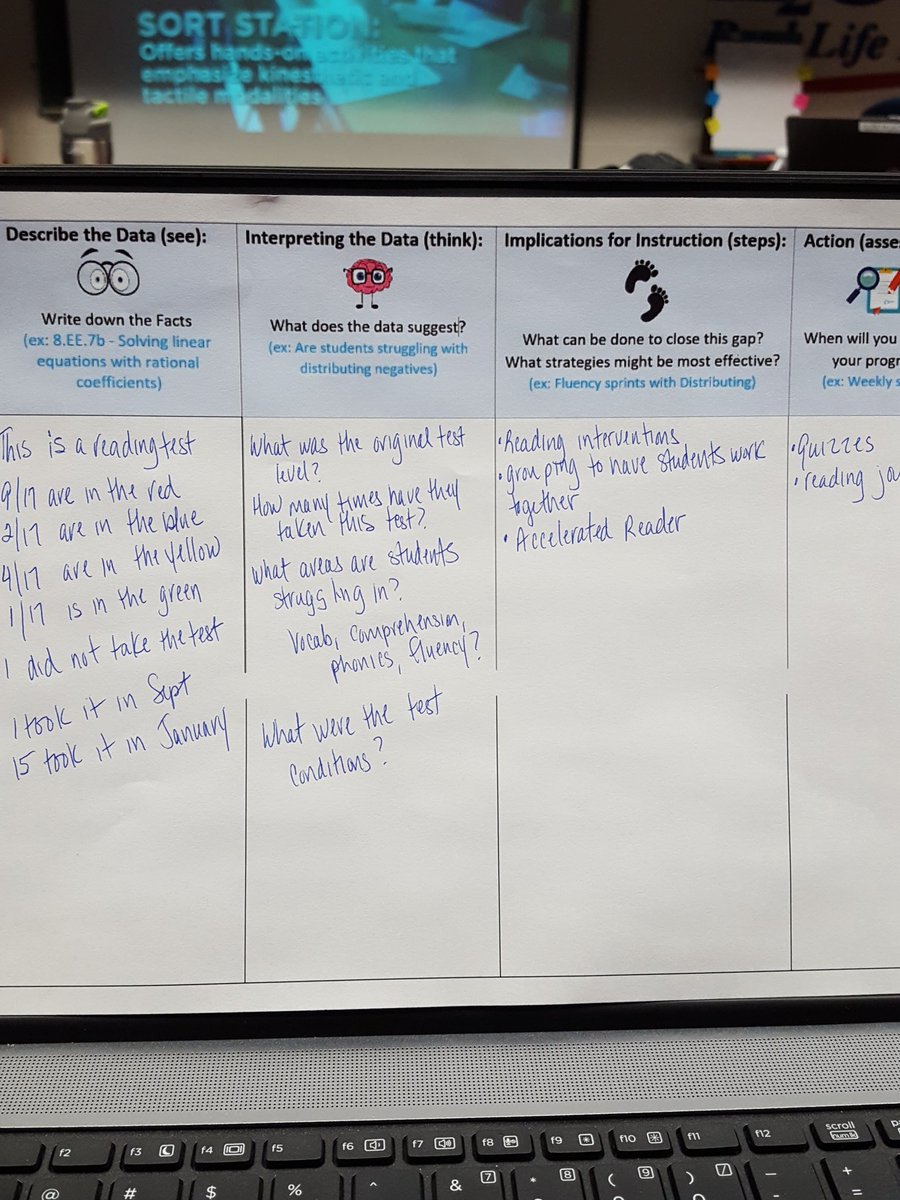 SORT STATION:
Offers hands-on activities that
emphasize kinesthetic and
tactile modalities
Life
Describe the Data (see):
Write down the Facts
(ex: 8.EE.7b - Solving linear
equations with rational
coefficients)
This is a reading test
9/17 are in the red
2/17 are in the blue
4/17 are in the yellow
1/17 is in the green
1 did not take the test
1 took it in Sept
15 took it in January
Interpreting the Data (think):
What does the data suggest?
(ex: Are students struggling with
distributing negatives)
What was the original test
level?
How many times have they
taken this test?
What areas are students
struggling in?
Vocab, comprehension,
phonics, fluency?
What were the test
conditions?
Implications for Instruction (steps):
What can be done to close this gap?
What strategies might be most effective?
(ex: Fluency sprints with Distributing)
• Reading interventions
• grouping to have students work
together
• Accelerated Reader
Action (asse
When will you
your progr
(ex: Weekly s
• Quizzes
• reading jou
f2 f3 f4 f5 f6 f7 f8 f9 f10 f11 f12 scroll
num lk
@ # $ % ^ & 7 * 8 ( 9 ) / — +
=